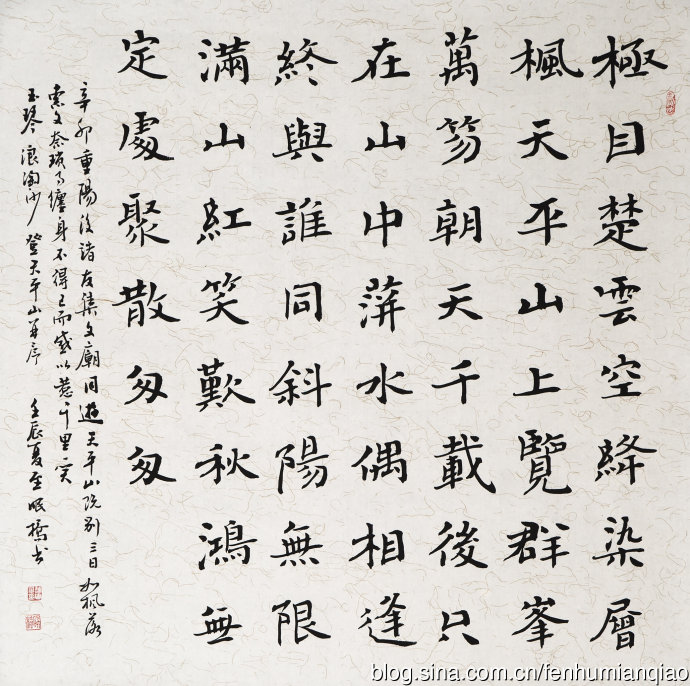 極目楚雲空絳染層
楓天平山上覽群峯
萬笏朝天千載後只
在山中萍水偶相逢
終與誰同斜陽無限
滿山紅笑歎秋鴻無
定處聚散匆匆
辛卯重陽後諸友集文廟同遊天平山既別三日如楓落
索文奈瑣事纏身不得已而感以千里一笑
玉琴浪淘沙登天平山并序 壬辰夏至眠橋書
blog.sina.com.cn/fenhumianqiao